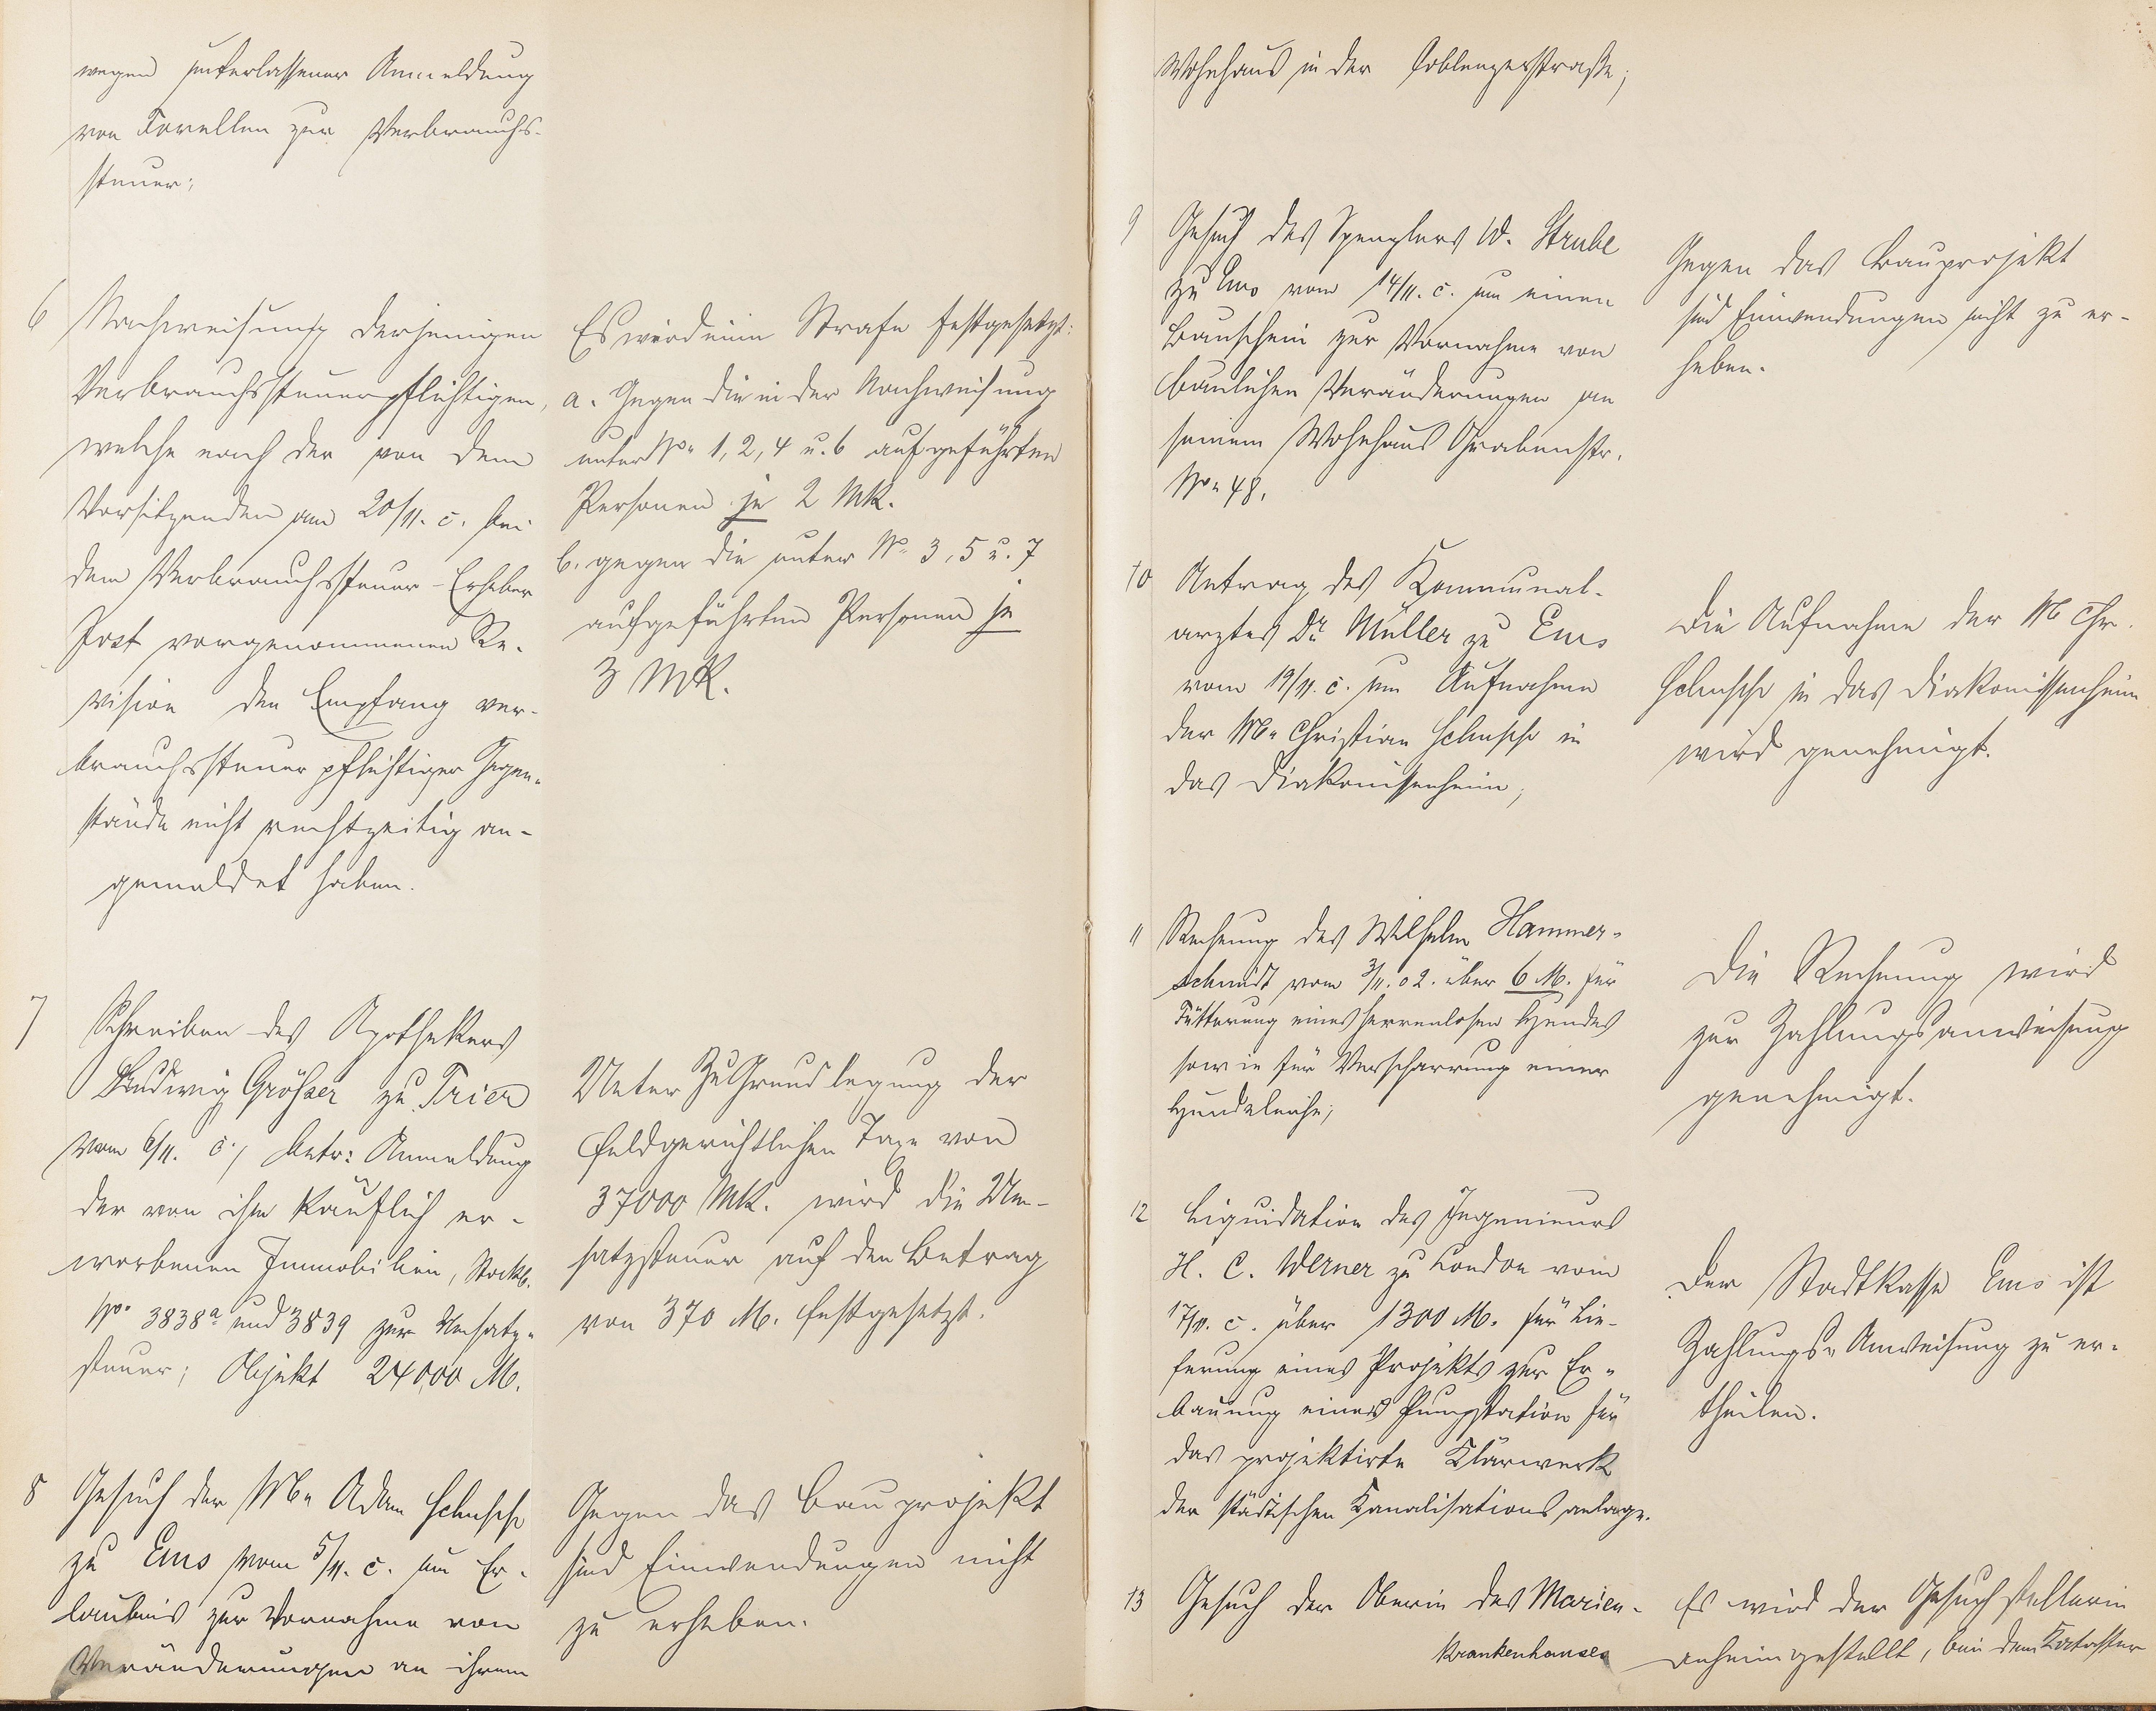 wegen unterlassener Anmeldung
von Forellen zur Verbrauchs-
steuer;
6 Nachweisung derjenigen
Verbrauchssteuerpflichtigen,
welche nach der von dem
Vorsitzenden am 20/11. c. bei
dem Verbrauchssteuer-Erheber
Post vorgenommenen Re-
vision den Empfang ver-
brauchssteuerpflichtiger Gegen-
stände nicht rechtzeitig an-
gemeldet haben.
Es wird eine Strafe festgesetzt:
a. Gegen die in der Nachweisung
unter No. 1, 2, 4 u. 6 aufgeführten
Personen je 2 Mk.
b. gegen die unter No. 3, 5 u. 7
aufgeführten Personen je
3 Mk.
7 Schreiben des Apothekers
Ludwig Größer zu Trier
vom 6/11. c., betr: Anmeldung
der von ihm käuflich er-
worbenen Immobilien, Stockb.
No. 3838a und 3839 zur Umsatz-
steuer; Objekt 24000 M.
Unter Zu Grundlegung der
feldgerichtlichen Taxe von
37000 Mk. wird die Um-
satzsteuer auf den Betrag
von 370 M. festgesetzt.
8 Gesuch der Adam
zu Ems vom 5/11. c. um Er-
laubnis zur Vornahme von
Veränderungen an ihrem
Gegen das Bauprojekt
sind Einwendungen nicht
zu erheben.
Wohnhaus in der Coblenzerstraße;
9 Gesuch des Spenglers W. Strube
zu Ems vom 14/11. c. um einen
Bauschein zur Vornahme von
baulichen Veränderungen an
seinem Wohnhaus Grabenstr.
No. 48.
Gegen das Bauprojekt
sind Einwendungen nicht zu er-
heben.
10 Antrag des Kommunal-
arztes Dr. Müller zu Ems
vom 19/11. c. um Aufnahme
der Christian in
das Diakonissenheim;
Die Aufnahme der Chr.
in das Diakonissenheim
wird genehmigt.
11 Rechnung des Wilhelm Hammer-
schmidt vom 3/11. 02. über 6 M. für
Fütterung eines herrenlosen Hundes
sowie für Verscharrung einer
Hundeleiche;
Die Rechnung wird
zur Zahlungsanweisung
genehmigt.
12 Liquidation des Ingenieurs
H. C. Werner zu London vom
17/11. c. über 1300 M. für Lie-
ferung eines Projekts zur Er-
bauung einer Pumpstation für
das projektirte Klärwerk
der städtischen Kanalisationsanlage.
Der Stadtkasse Ems ist
Zahlungs-Anweisung zu er-
theilen.
13 Gesuch der Oberin des Marien-
krankenhauses
Es wird der Gesuchstellerin
anheimgestellt, bei dem Kataster